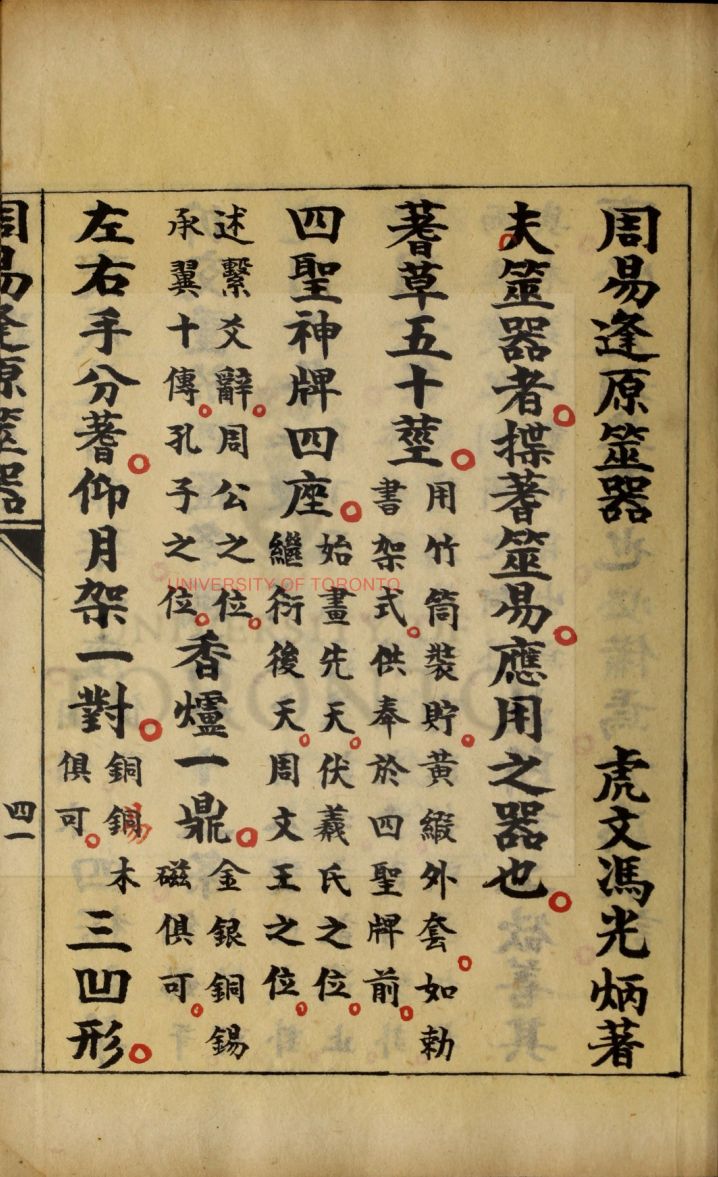 周易逢原筮器 虎文馮光炳著
夫筮器者。揲蓍筮易。應用之器也。
蓍草五十莖。
用竹筒裝貯。黃緞外套。如勅
書架式。供奉於四聖牌前。
四聖神牌四座。
始畫先天。伏羲氏之位。
繼衍後天。周文王之位。
述繫爻辭。周公之位。
承翼十傳。孔子之位。
香爐一鼎。
金銀銅錫
磁俱可。
左右手分蓍。仰月架一對。
銅銅錫木
俱可。
三凹形。
周易逢原筮器
四一
UNIVERSITY OF TORONTO